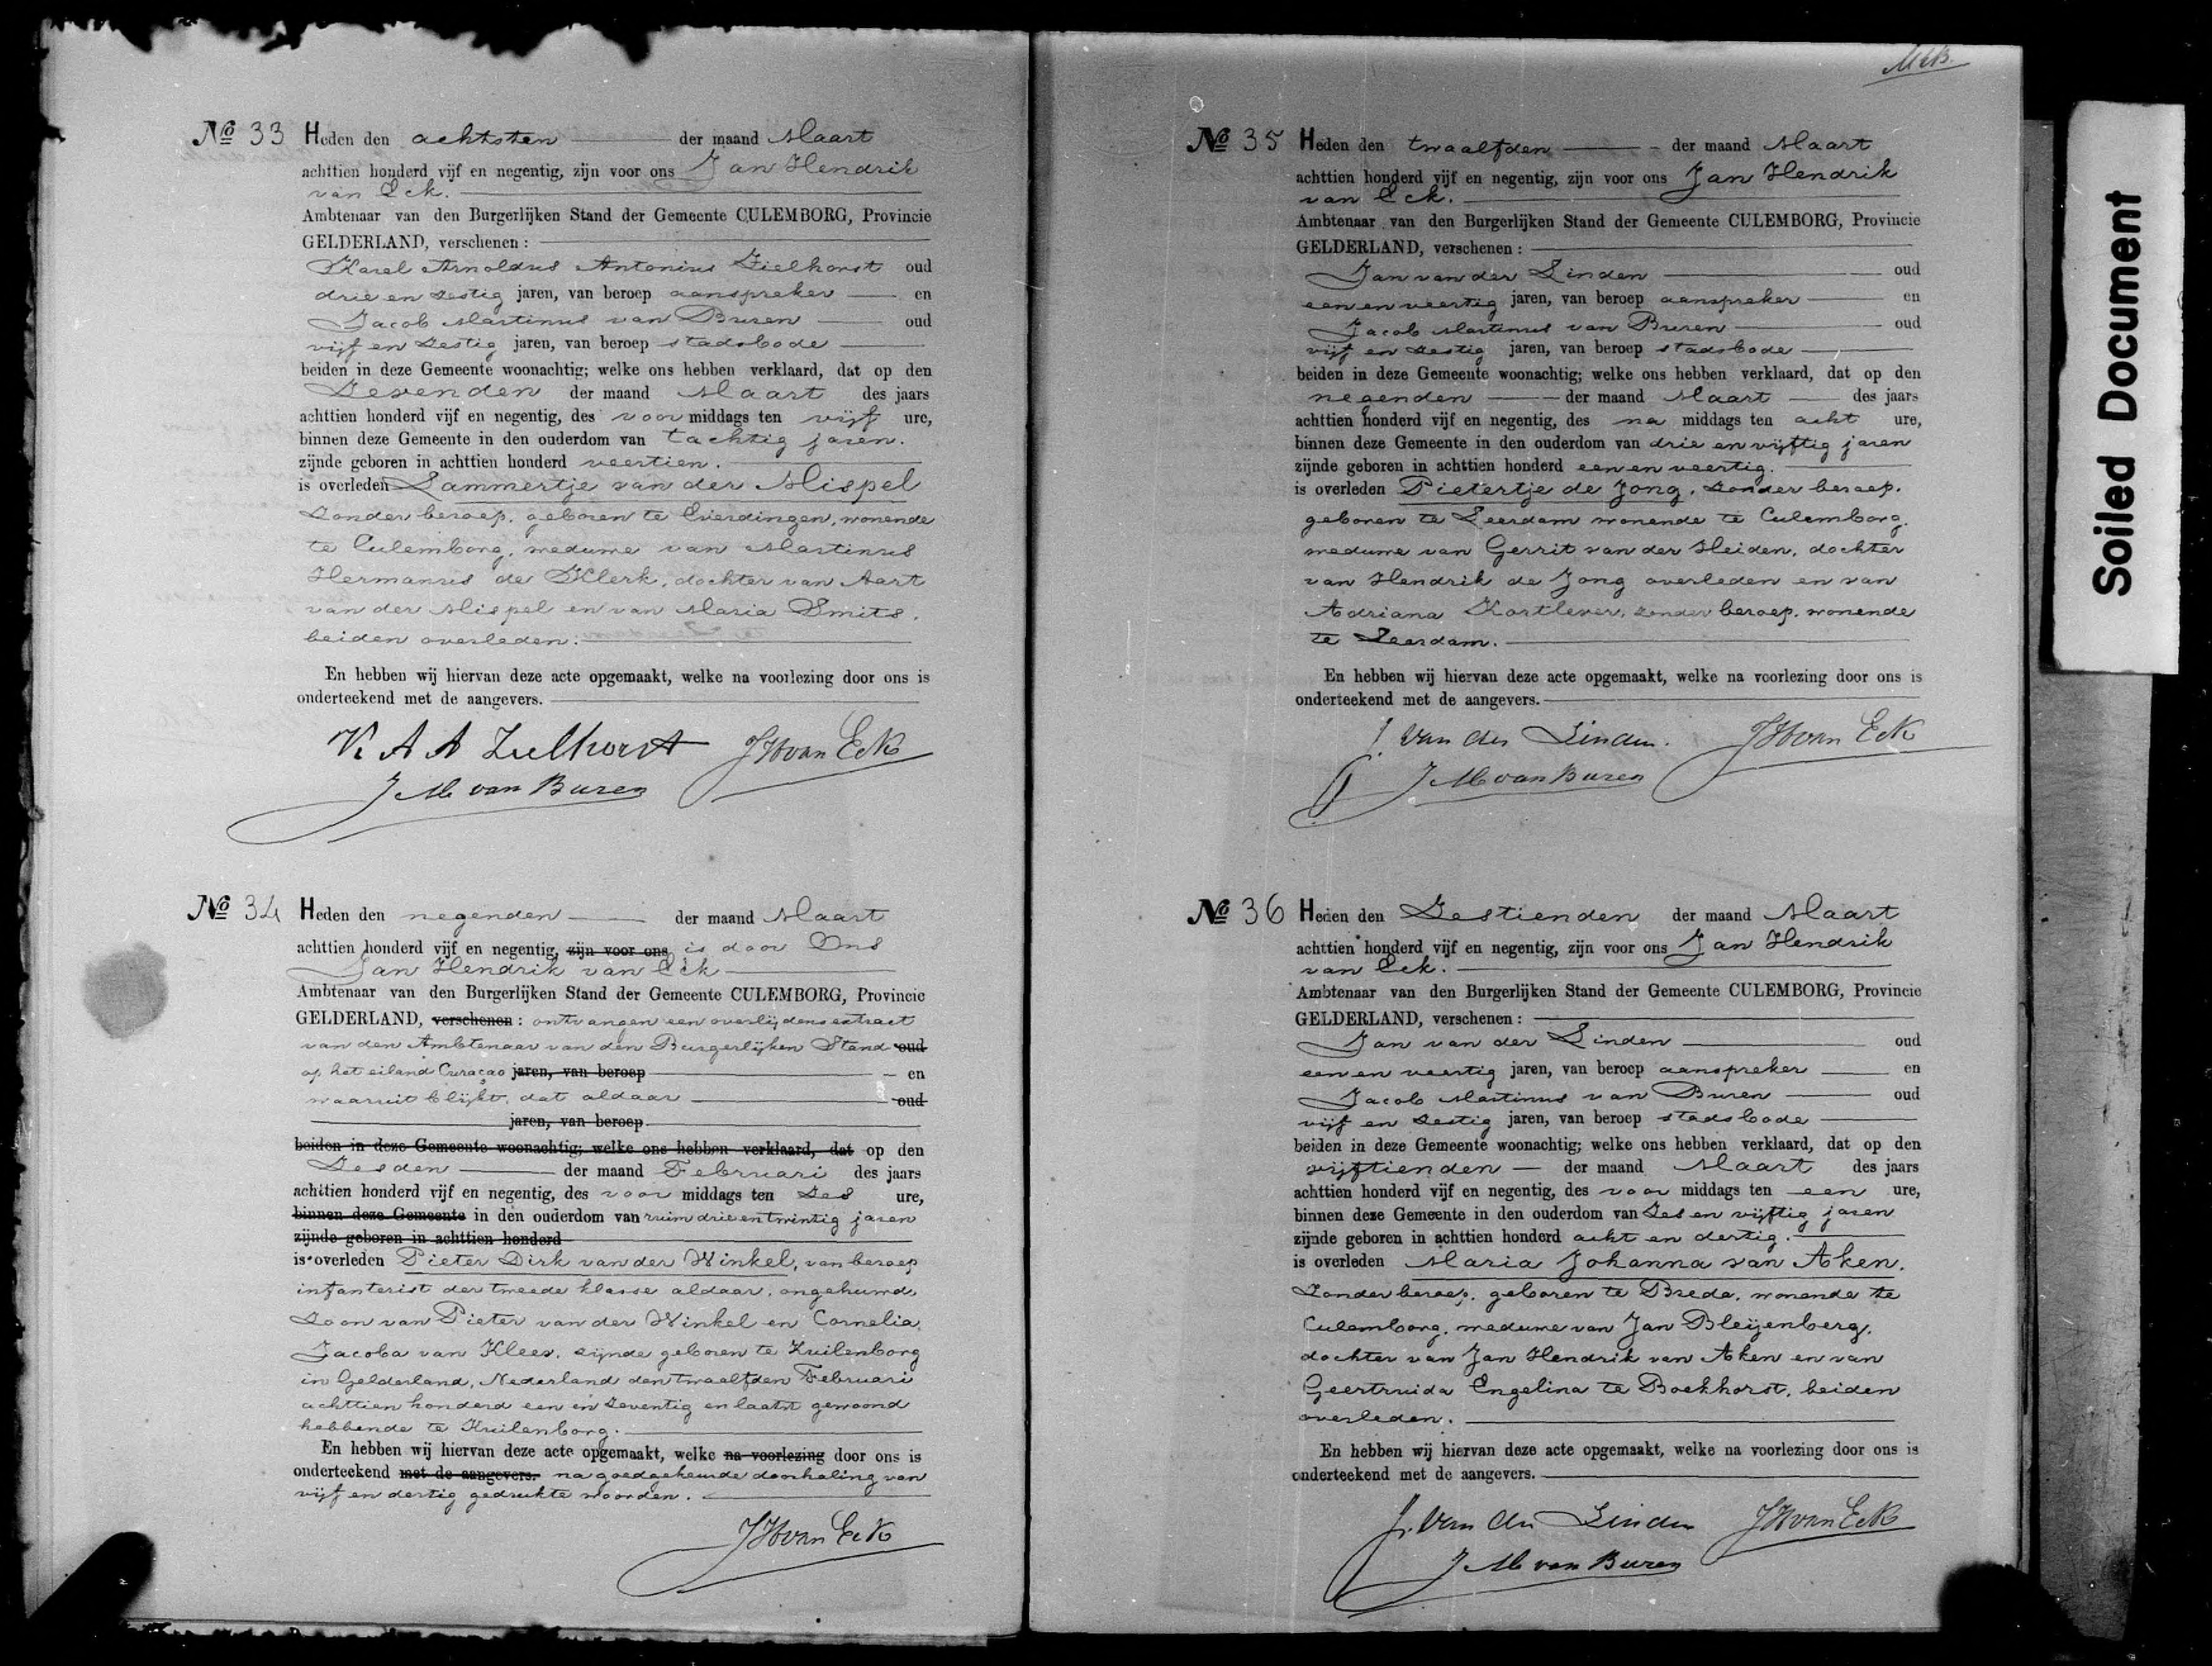 No 33 Heden den achtsten der maand Maart
achttien honderd vijf en negentig, zijn voor ons Jan Hendrik
van Eck.
Ambtenaar van den Burgerlijken Stand der Gemeente CULEMBORG, Provincie
GELDERLAND, verschenen :
Karel Arnoldus Antonius Zielhorst oud
drie en zestig jaren, van beroep aanspreker en
Jacob Martinus van Buren oud
vijf en zestig jaren, van beroep stadsbode
beiden in deze Gemeente woonachtig; welke ons hebben verklaard, dat op den
Zevenden der maand Maart des jaars
achttien honderd vijf en negentig, des voor middags ten vijf ure,
binnen deze Gemeente in den ouderdom van tachtig jaren.
zijnde geboren in achttien honderd veertien.
is overleden Lammertje van der Mispel
Zonder beroep, geboren te Everdingen, wonende
te Culemborg, weduwe van Martinus
Hermanus de Klerk, dochter van Aart
van der Mispel en van Maria Smits,
beiden overleden.
En hebben wij hiervan deze acte opgemaakt, welke na voorlezing door ons is
onderteekend met de aangevers.
K A A Zielhorst JHvan Eck
J M van Buren
No 34 Heden den negenden der maand Maart
achttien honderd vijf en negentig, zijn voor ons is door Ons
Jan Hendrik van Eck
Ambtenaar van den Burgerlijken Stand der Gemeente CULEMBORG, Provincie
GELDERLAND, verschenen : ontvangen een overlijdens extract
van den Ambtenaar van den Burgerlijken Stand oud
op het eiland Curaçao jaren, van beroep en
waaruit blijkt, dat aldaar oud
jaren, van beroep
beiden in deze Gemeente woonachtig; welke ons hebben verklaard, dat op den
Zesden der maand Februari des jaars
achttien honderd vijf en negentig, des voor middags ten Zes ure,
binnen deze Gemeente in den ouderdom van ruim drie en twintig jaren
zijnde geboren in achttien honderd
is overleden Pieter Dirk van der Winkel, van beroep
infanterist der tweede klasse aldaar, ongehuwd,
Zoon van Pieter van der Winkel en Cornelia
Jacoba van Klees, zijnde geboren te Kuilenborg
in Gelderland, Nederland den twaalfden Februari
achttien honderd een en Zeventig en laatst gewoond
hebbende te Kuilenborg.
En hebben wij hiervan deze acte opgemaakt, welke na voorlezing door ons is
onderteekend met de aangevers. na goedgekeurde doorhaling van
vijf en dertig gedrukte woorden.
JHvan Eck
No 35 Heden den twaalfden der maand Maart
achttien honderd vijf en negentig, zijn voor ons Jan Hendrik
van Eck.
Ambtenaar van den Burgerlijken Stand der Gemeente CULEMBORG, Provincie
GELDERLAND, verschenen :
Jan van der Linden oud
een en veertig jaren, van beroep aanspreker en
Jacob Martinus van Buren oud
vijf en zestig jaren, van beroep stadsbode
beiden in deze Gemeente woonachtig; welke ons hebben verklaard, dat op den
negenden der maand Maart des jaars
achttien honderd vijf en negentig, des na middags ten acht ure,
binnen deze Gemeente in den ouderdom van drie en vijftig jaren
zijnde geboren in achttien honderd een en veertig.
is overleden Pietertje de Jong, zonder beroep.
geboren te Leerdam wonende te Culemborg,
weduwe van Gerrit van der Heiden, dochter
van Hendrik de Jong overleden en van
Adriana Kortlever, zonder beroep, wonende
te Leerdam.
En hebben wij hiervan deze acte opgemaakt, welke na voorlezing door ons is
onderteekend met de aangevers.
J. van der Linden. JHvan Eck
J M van Buren
No 36 Heden den Zestienden der maand Maart
achttien honderd vijf en negentig, zijn voor ons Jan Hendrik
van Eck.
Ambtenaar van den Burgerlijken Stand der Gemeente CULEMBORG, Provincie
GELDERLAND, verschenen :
Jan van der Linden oud
een en veertig jaren, van beroep aanspreker en
Jacob Martinus van Buren oud
vijf en zestig jaren, van beroep stadsbode
beiden in deze Gemeente woonachtig; welke ons hebben verklaard, dat op den
vijftienden der maand Maart des jaars
achttien honderd vijf en negentig, des voor middags ten een ure,
binnen deze Gemeente in den ouderdom van Zes en vijftig jaren
zijnde geboren in achttien honderd acht en dertig.
is overleden Maria Johanna van Aken,
Zonder beroep, geboren te Breda, wonende te
Culemborg, weduwe van Jan Bleijenberg,
dochter van Jan Hendrik van Aken en van
Geertruida Engelina te Boekhorst, beiden
overleden.
En hebben wij hiervan deze acte opgemaakt, welke na voorlezing door ons is
onderteekend met de aangevers.
J. van der Linden JHvan Eck
J M van Buren
Soiled Document